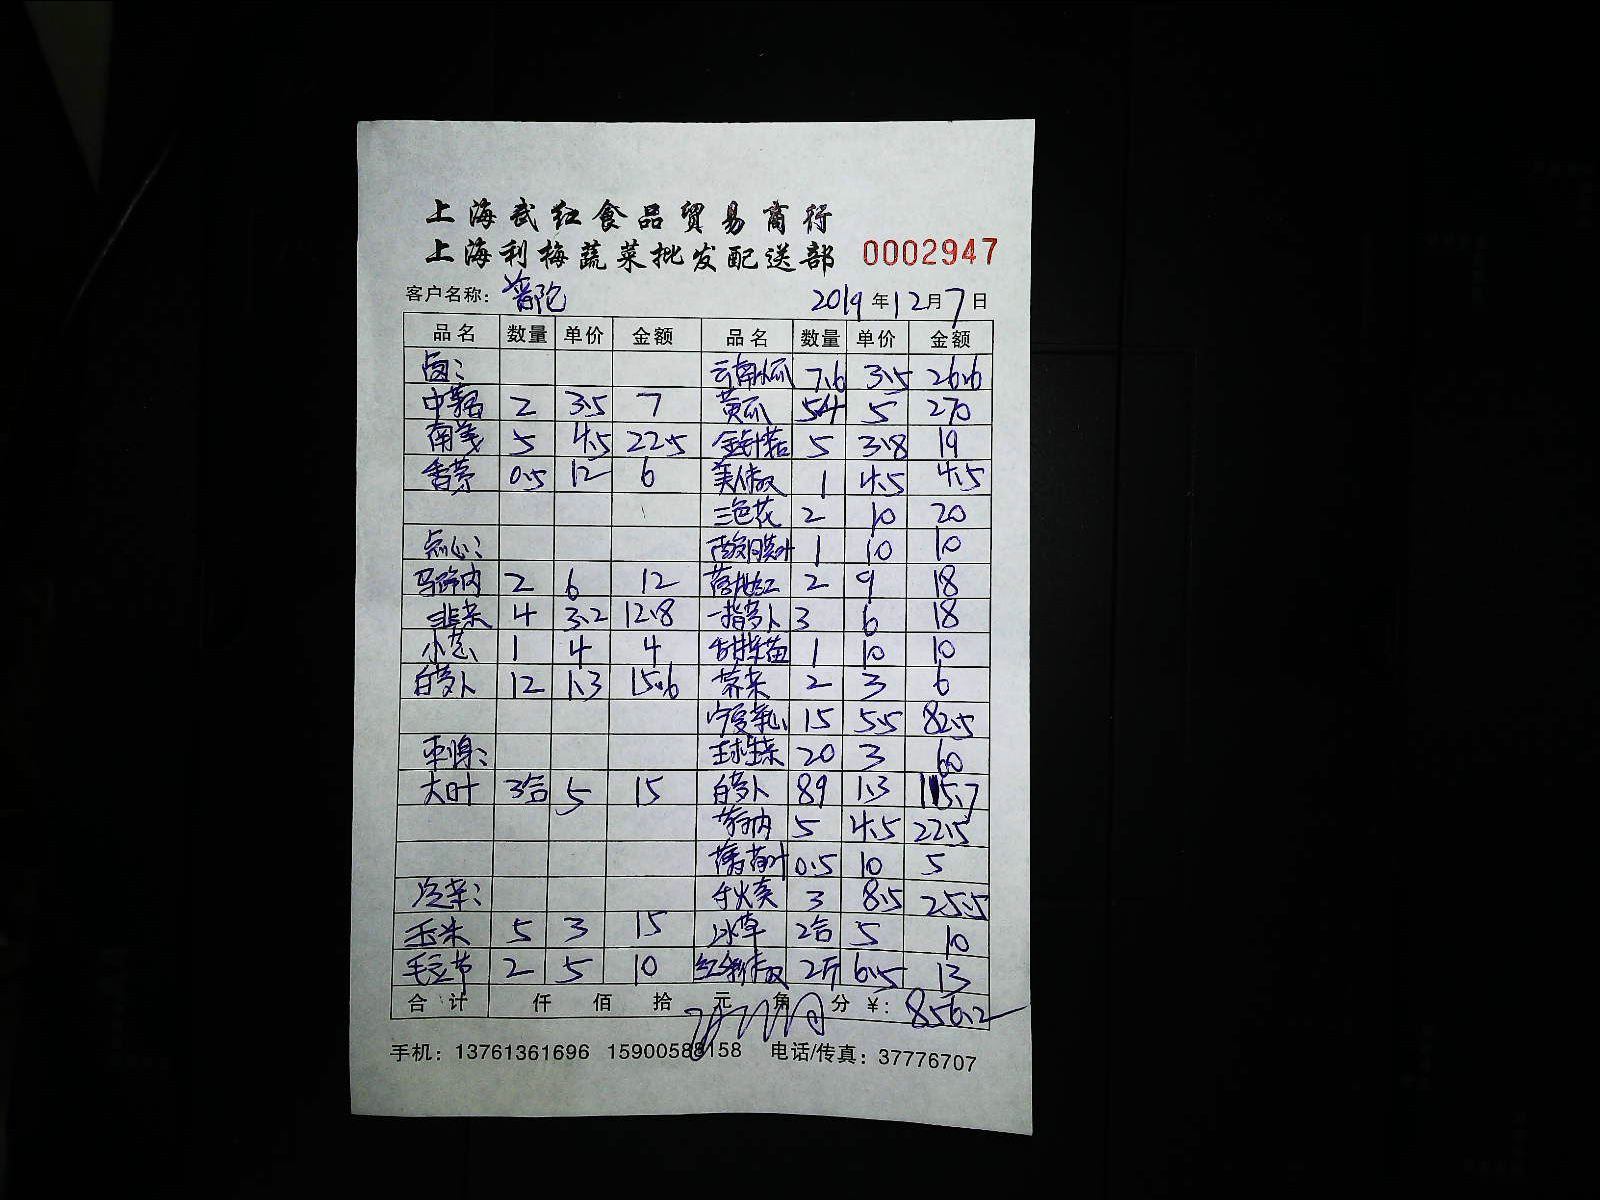 上海武红食品贸易商行
上海利梅蔬菜批发配送部 0002947
客户名称: 普陀 2019年12月7日
品名 数量 单价 金额 品名 数量 单价 金额
卤: 云南小瓜 7.6 3.5 26.6
中菇 2 3.5 7 黄瓜 54 5 270
南姜 5 4.5 22.5 金针菇 5 3.8 19
香茅 0.5 12 6 美人椒 1 4.5 4.5
三色花 2 10 20
点心: 酸膜叶 1 10 10
马蹄肉 2 6 12 落地红 2 9 18
韭菜 4 3.2 12.8 一指萝卜 3 6 18
小葱 1 4 4 甜菜苗 1 10 10
白萝卜 12 1.3 15.6 荠菜 2 3 6
宁夏菜心 15 5.5 82.5
平身: 玉球生菜 20 3 60
大叶 3合 5 15 白萝卜 89 1.3 115.7
5 4.5 22.5
薄荷叶 0.5 10 5
冷菜: 3 8.5 25.5
玉米 5 3 15 冰草 2合 5 10
毛豆节 2 5 10 红尖椒 2斤 6.5 13
合计 仟 佰 拾 元 角 分 ¥: 856.2
手机: 13761361696 15900588158 电话/传真: 37776707